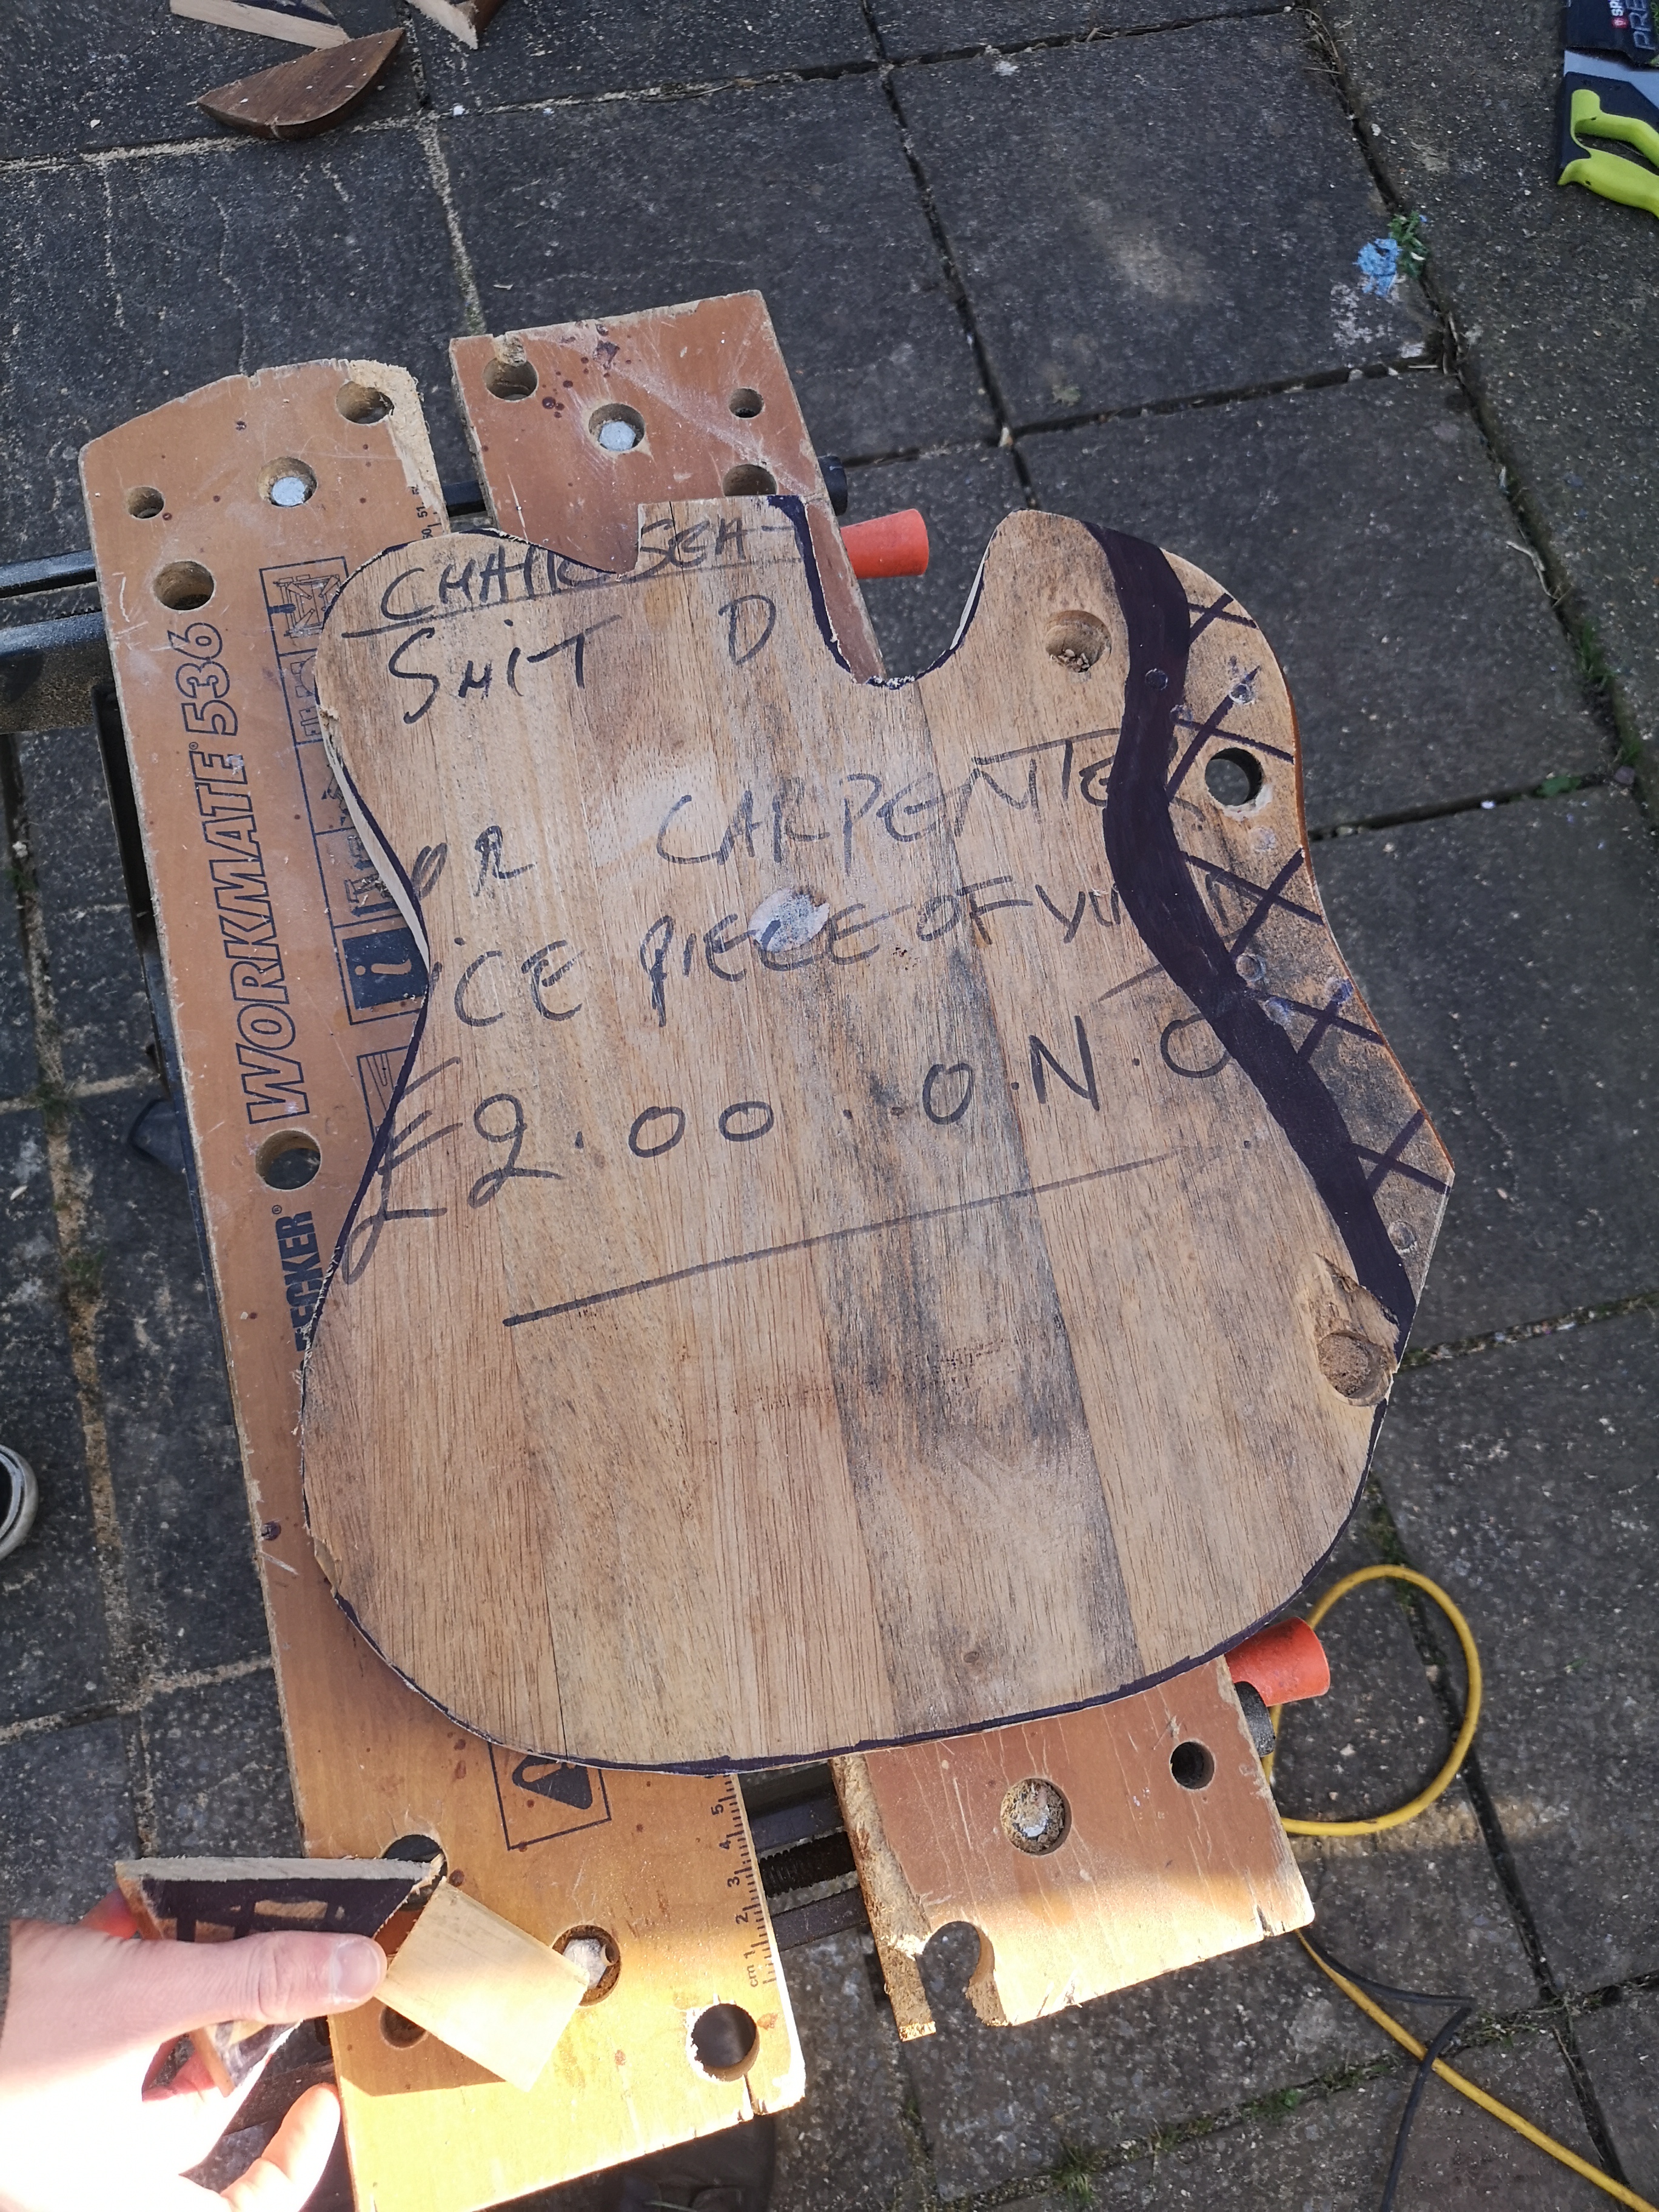 CHAIR SEA
SUIT D
OR CARPENTER
ICE PIECE OF
£2.00. O.N.O.
WORKMATE® 536
ECKER®
i
cm 1 2 3 4 5
50 51